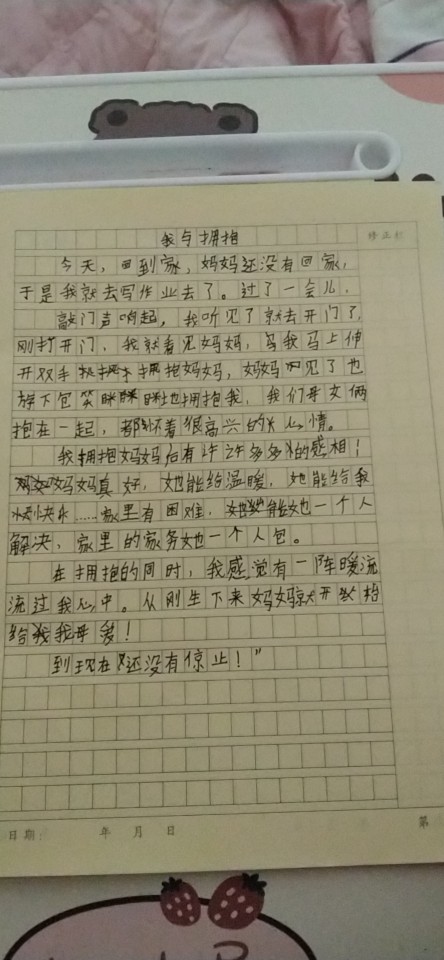 我与拥抱
修正栏
今天,回到家,妈妈还没有回家,
于是我就去写作业去了。过了一会儿,
敲门声响起,我听见了就去开门了,
刚打开门,我就看见妈妈,我马上伸
开双手拥抱妈妈,妈妈见了也
放下包笑眯眯地拥抱我,我们母女俩
抱在一起,都怀着很高兴的心情。
我拥抱妈妈后有许许多多的感相!
妈妈真好,她能给温暖,她能给我
快快乐……家里有困难,她一个人
解决,家里的家务她一个人包。
在拥抱的同时,我感觉有一阵暖流
流过我心中。从刚生下来妈妈就开始
给我母爱!
到现在还没有停止!"
日期: 年 月 日
第